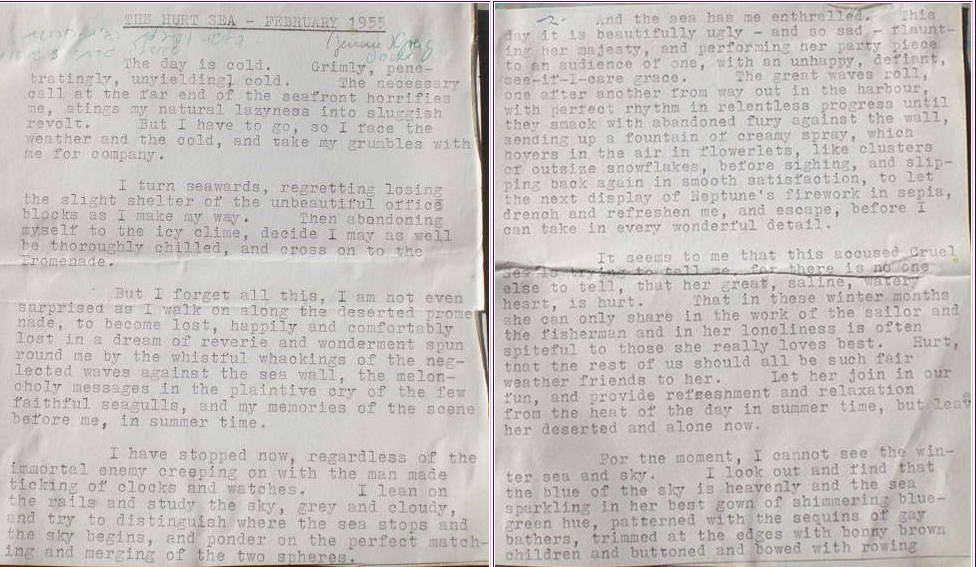 THE HURT SEA - FEBRUARY 1955
The day is cold. Grimly, pene-
tratingly, unyieldingl cold. The necessary
call at the far end of the seafront horrifies
me, stings my natural lazyness into sluggish
revolt. But I have to go, so I face the
weather and the cold, and take my grumbles with
me for company.
I turn seawards, regretting losing
the slight shelter of the unbeautiful office
blocks as I make my way. Then abandoning
myself to the icy clime, decide I may as well
be thoroughly chilled, and cross on to the
Promenade.
But I forget all this, I am not even
surprised as I walk on along the deserted prome
nade, to become lost, happily and comfortably
lost in a dream of reverie and wonderment spun
round me by the whistful whackings of the neg-
lected waves against the sea wall, the melon-
choly messages in the plaintive cry of the few
faithful seagulls, and my memories of the scene
before me, in summer time.
I have stopped now, regardless of the
immortal enemy creeping on with the man made
ticking of clocks and watches. I lean on
the rails and study the sky, grey and cloudy,
and try to distinguish where the sea stops and
the sky begins, and ponder on the perfect match-
ing and merging of the two spheres.
2. And the sea has me enthralled. This
day it is beautifully ugly - and so sad - flaunt-
ing her majesty, and performing her party piece
to an audience of one, with an unhappy, defiant,
see-if-I-care grace. The great waves roll,
one after another from way out in the harbour,
with perfect rhythm in relentless progress until
they smack with abandoned fury against the wall,
sending up a fountain of creamy spray, which
hovers in the air in flowerlets, like clusters
of outsize snowflakes, before sighing, and slip-
ping back again in smooth satisfaction, to let
the next display of Neptune's firework in sepia,
drench and refreshen me, and escape, before I
can take in every wonderful detail.
It seems to me that this accused Cruel
Sea is trying to tell me, for there is no one
else to tell, that her great, saline, watery
heart, is hurt. That in these winter months
she can only share in the work of the sailor and
the fisherman and in her loneliness is often
spiteful to those she really loves best. Hurt,
that the rest of us should all be such fair
weather friends to her. Let her join in our
fun, and provide refreshment and relaxation
from the heat of the day in summer time, but leav
her deserted and alone now.
For the moment, I cannot see the win-
ter sea and sky. I look out and find that
the blue of the sky is heavenly and the sea
sparkling in her best gown of shimmering blue-
green hue, patterned with the sequins of gay
bathers, trimmed at the edges with bonny brown
children and buttoned and bowed with rowing